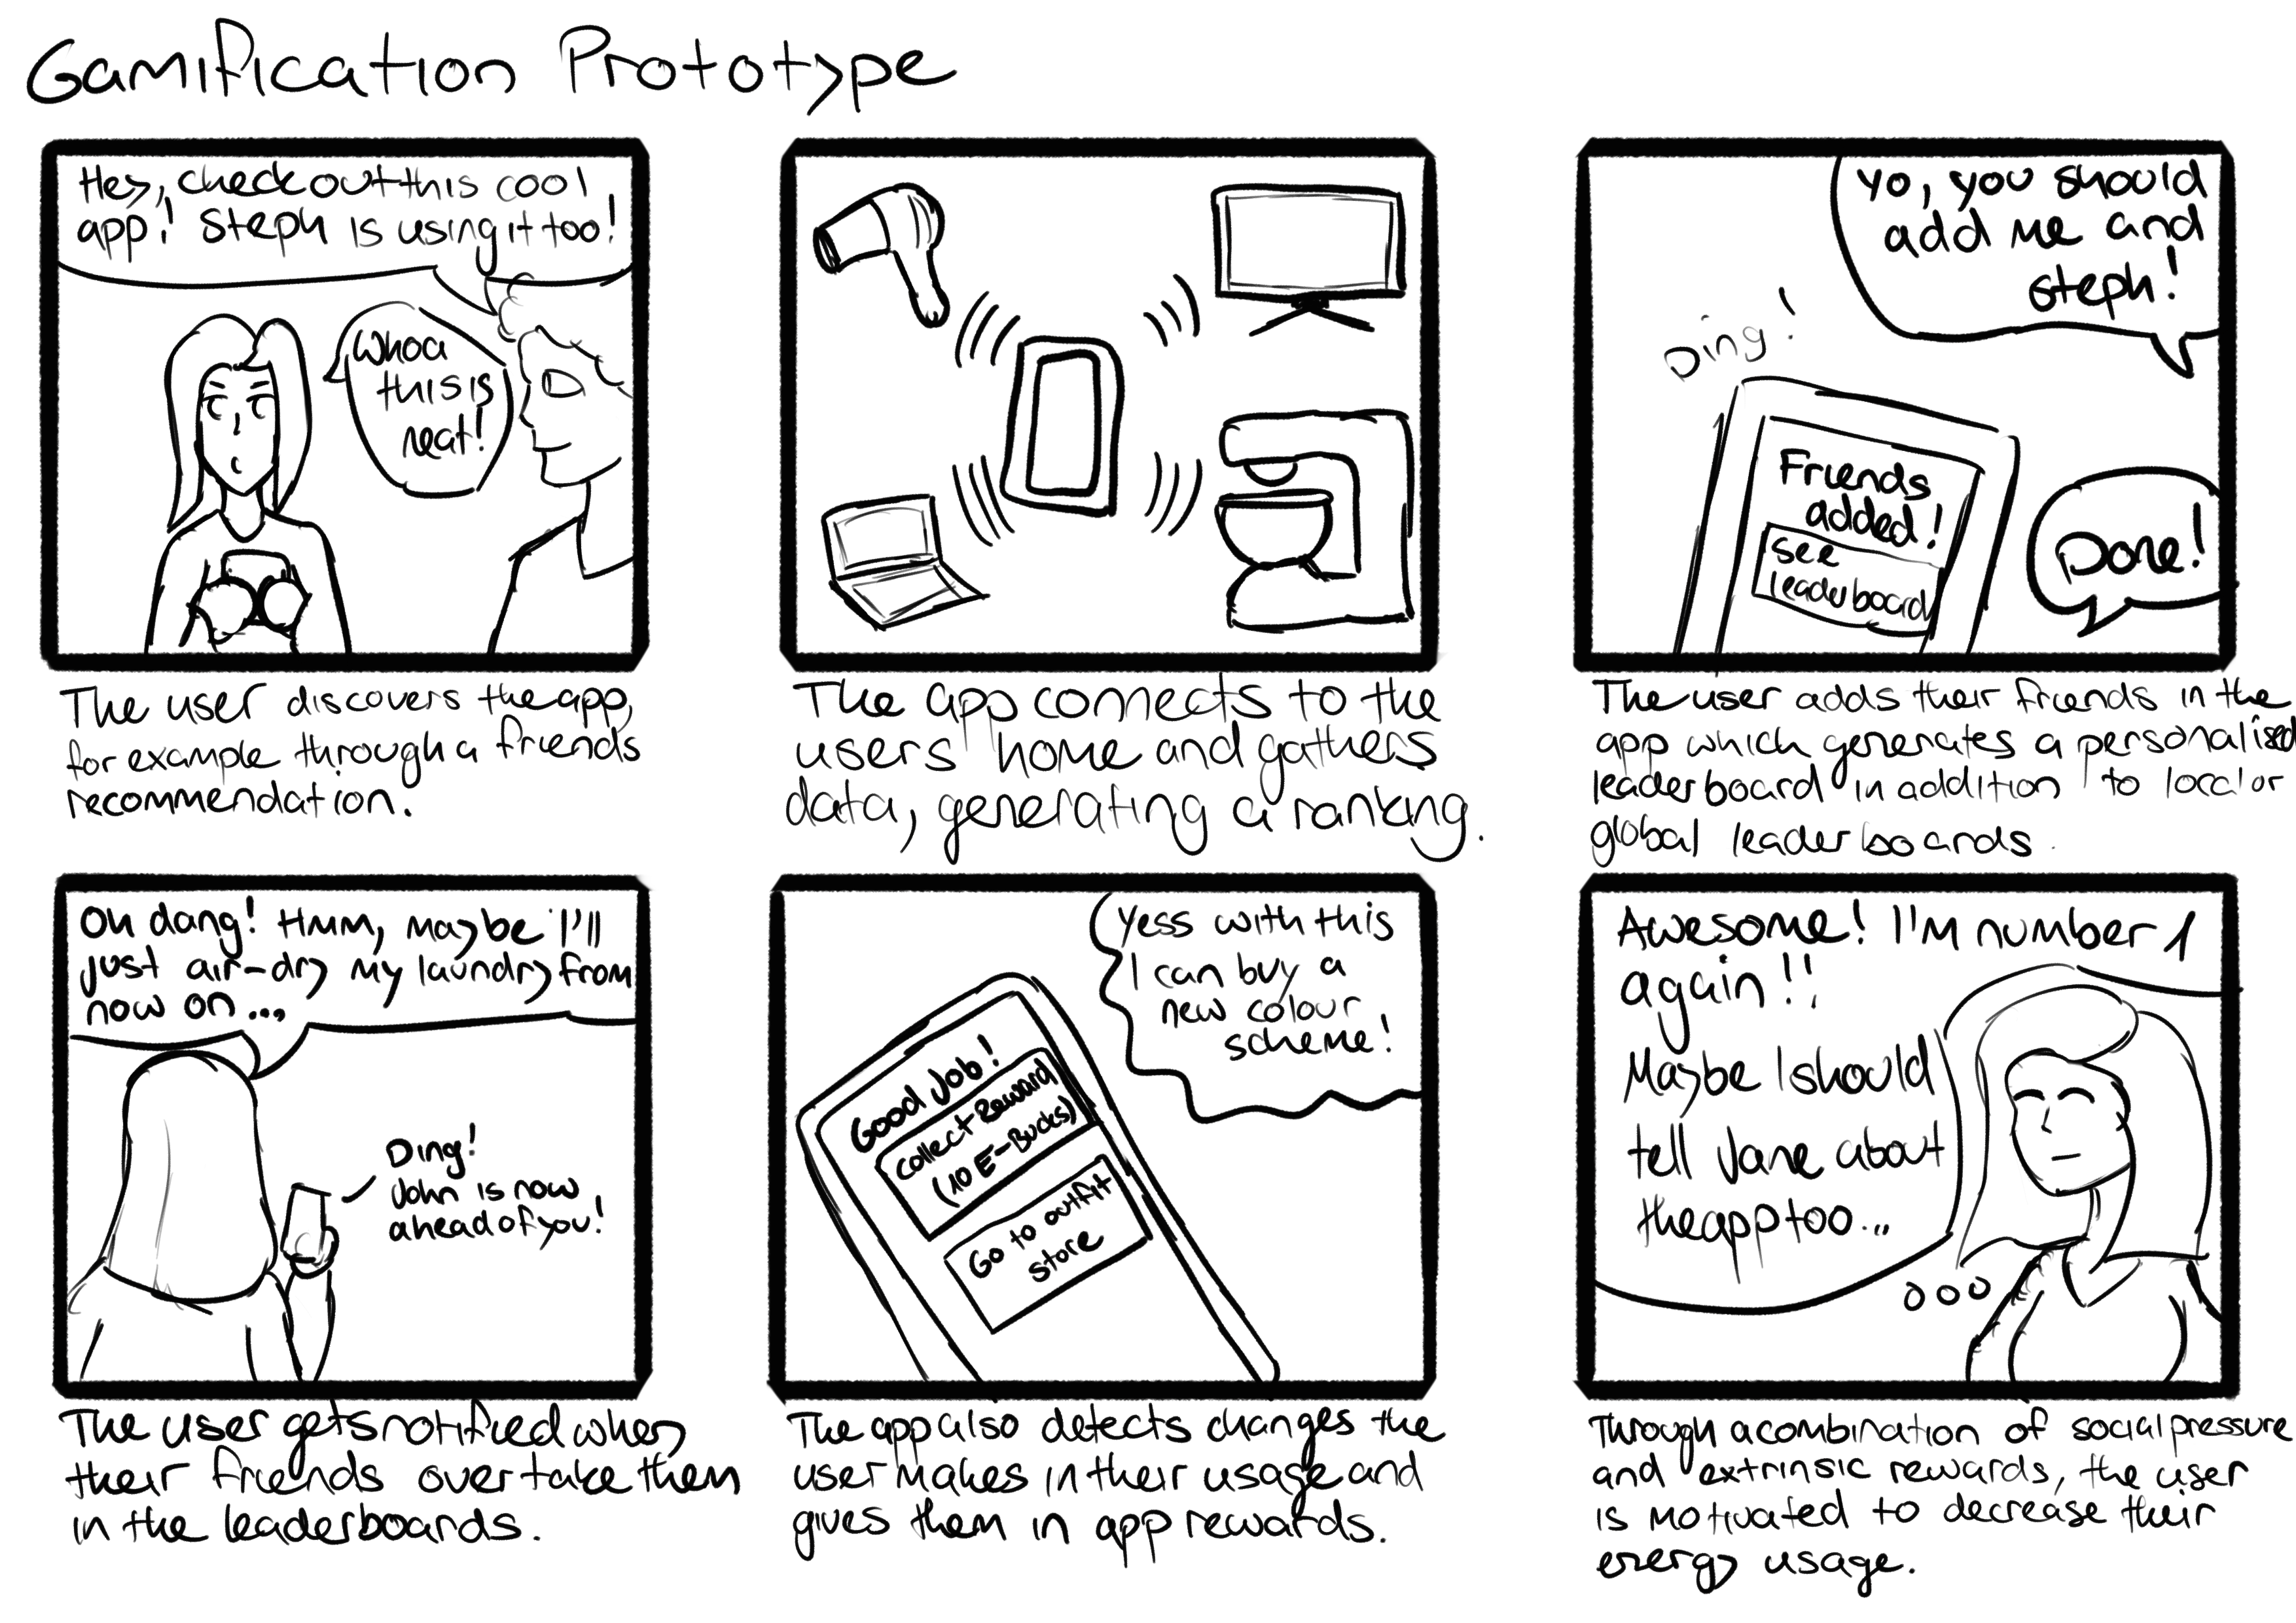 Gamification Prototype
Hey, check out this cool
app! Steph is using it too!
Whoa
this is
neat!
The user discovers the app,
for example through a friends
recommendation.
The app connects to the
users home and gathers
data, generating a ranking.
Yo, you should
add me and
Steph!
Ding!
Friends
added!
See
leaderboard
Done!
The user adds their friends in the
app which generates a personalised
leaderboard in addition to local or
global leaderboards.
Oh dang! Hmm, maybe I'll
just air-dry my laundry from
now on...
Ding!
John is now
ahead of you!
The user gets notified when
their friends overtake them
in the leaderboards.
Yess with this
I can buy a
new colour
scheme!
Good Job!
Collect Reward
(10 E-Bucks)
Go to outfit
store
The app also detects changes the
user makes in their usage and
gives them in app rewards.
Awesome! I'm number 1
again!!
Maybe I should
tell Jane about
the app too...
Through a combination of social pressure
and extrinsic rewards, the user
is motivated to decrease their
energy usage.